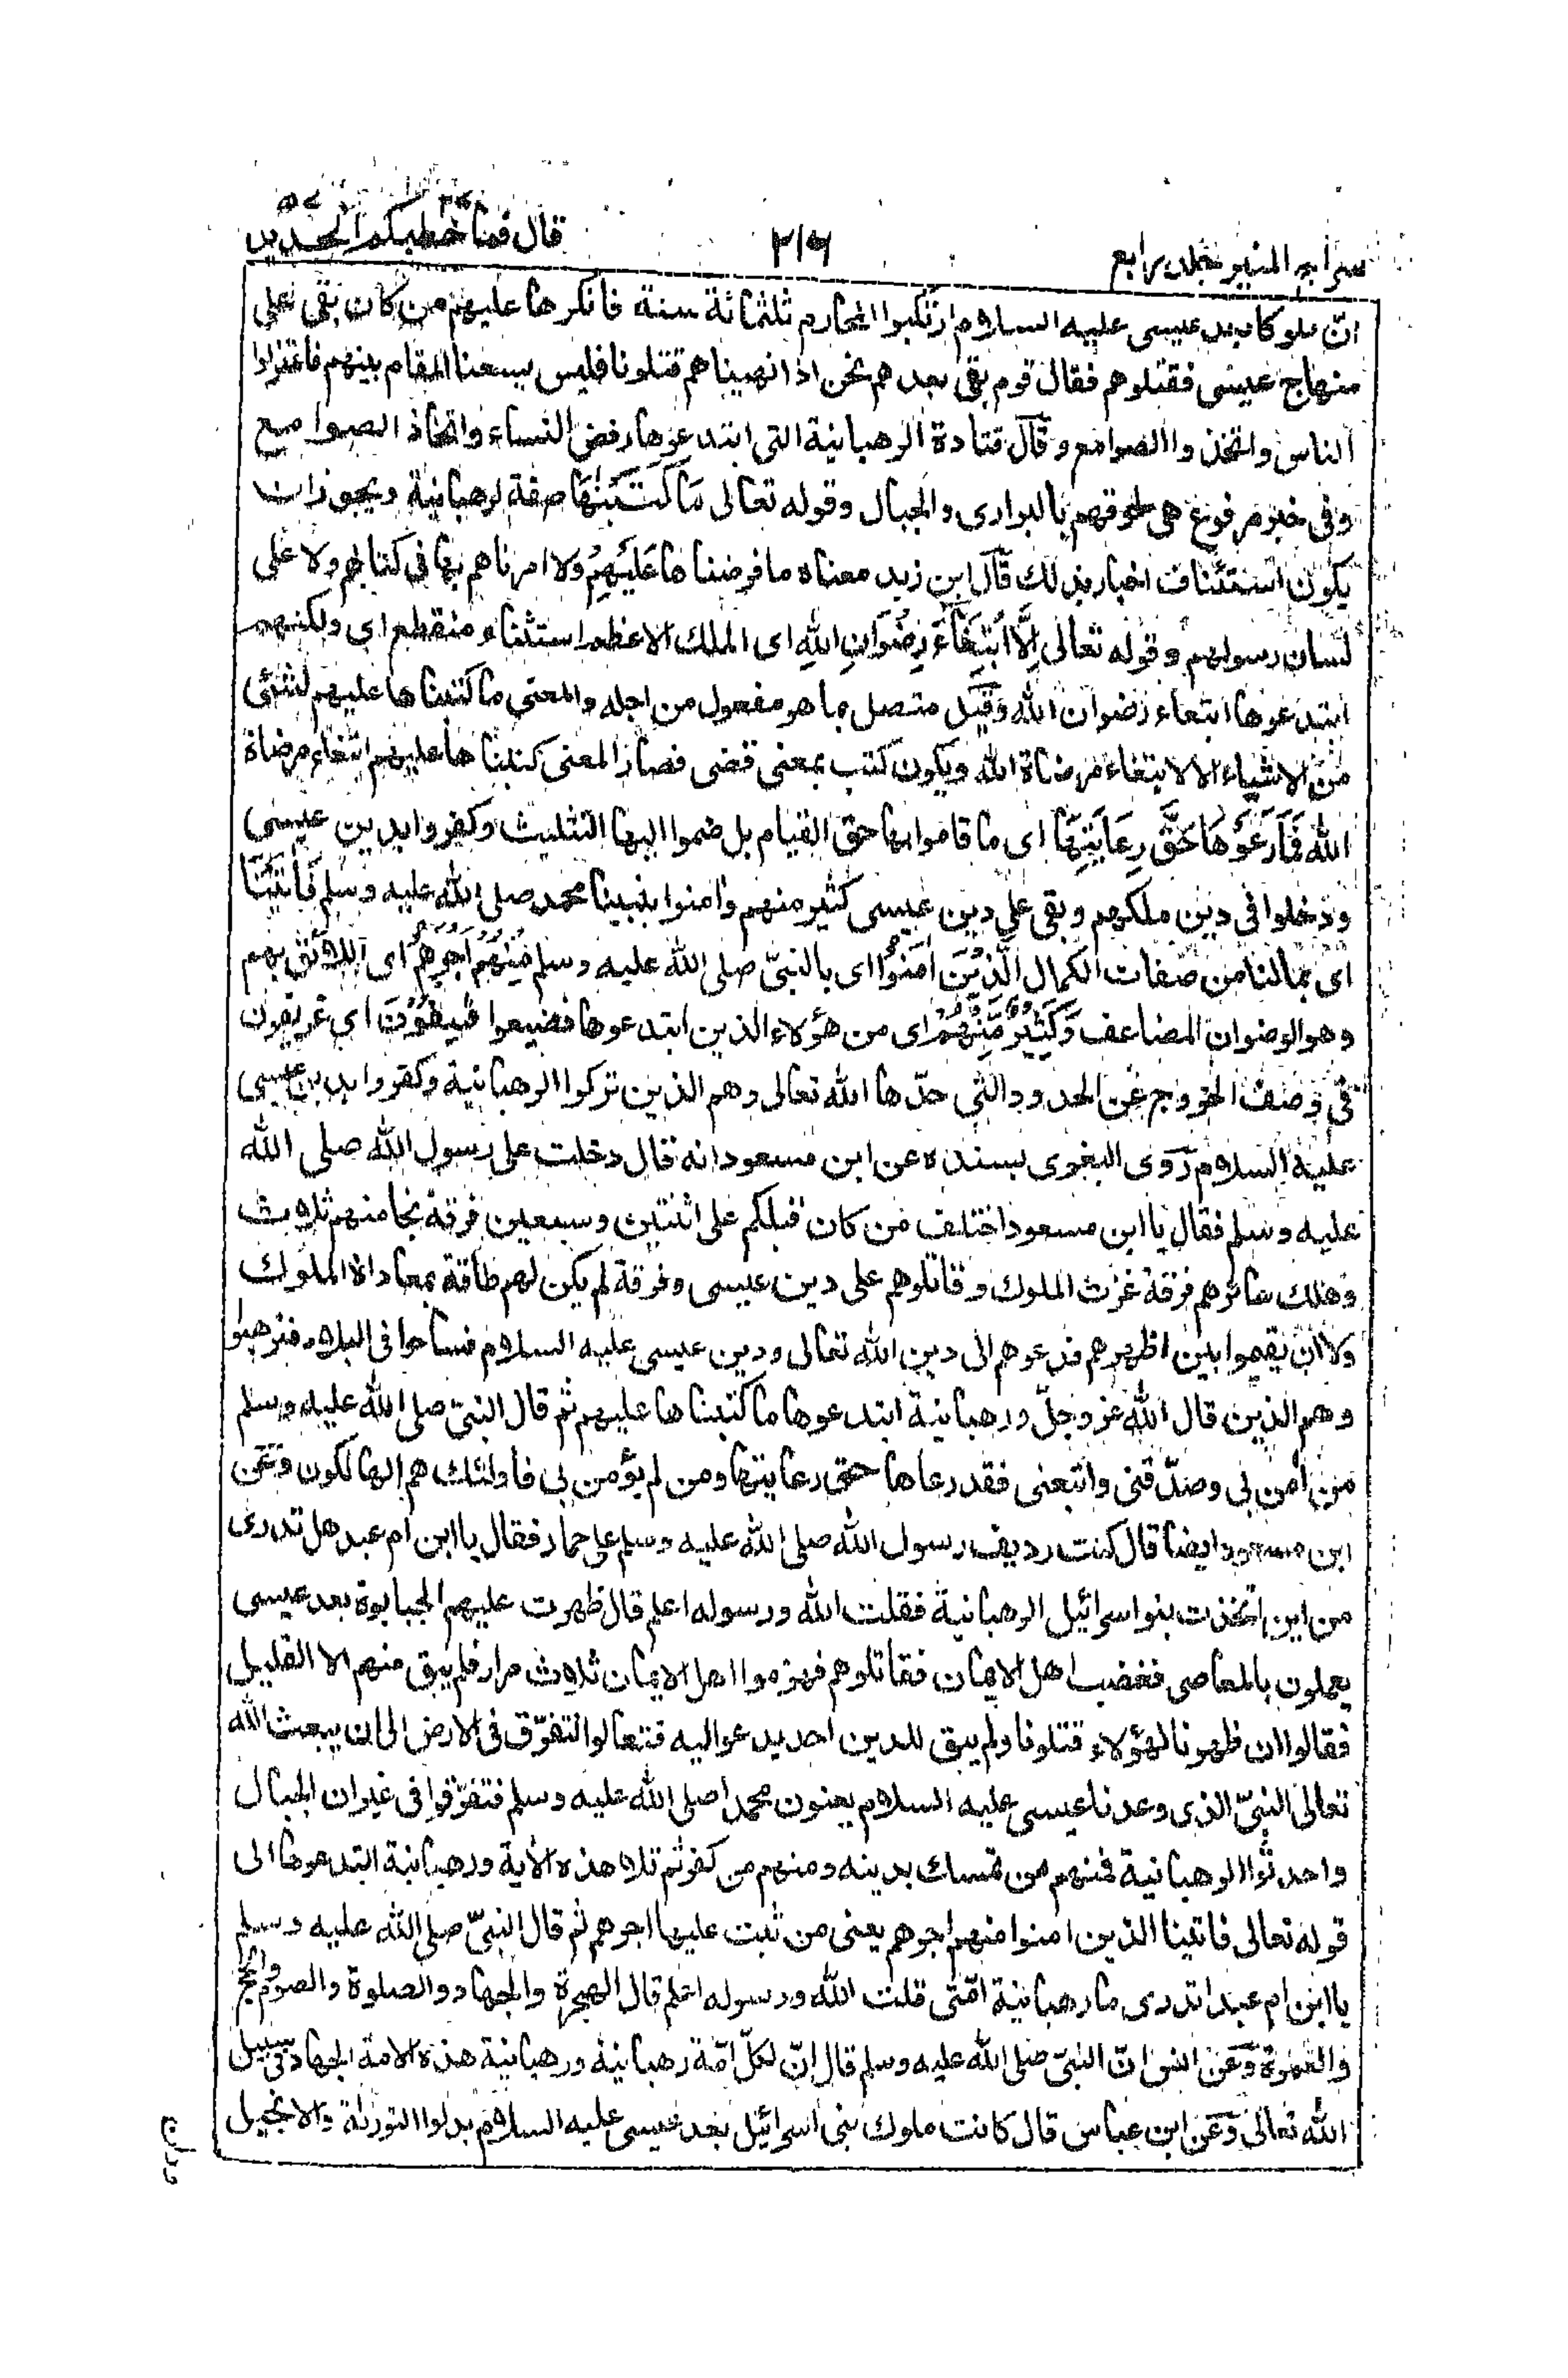 سراج المنير جلد رابع
٢١٦
قال فما خطبكم الحديد
انّ ملوكا بعد عيسى عليه السلام ارتكبوا المحارم ثلثمائة سنة فانكرها عليهم من كان بقى على
منهاج عيسى فقتلوهم فقال قوم بقى بعدهم نحن اذا نهيناهم قتلونا فليس يسعنا المقام بينهم فاعتزلوا
الناس واتخذوا الصوامع وقال قتادة الرهبانية التى ابتدعوها رفض النساء واتخاذ الصوامع
وفى خبر مرفوع هى لحوقهم بالبوارى والجبال وقوله تعالى مَا كَتَبْنٰهَا صفة لرهبانية ويجوز ان
يكون استئناف اخبار بذلك قال ابن زيد معناه ما فرضناها عَلَيْهِمْ ولا امرناهم بها فى كتابهم ولا على
لسان رسولهم وقوله تعالى اِلَّا ابْتِغَاءَ رِضْوَانِ اللهِ اى الملك الاعظم استثناء منقطع اى ولكنهم
ابتدعوها ابتغاء رضوان الله وقيل متصل بما هو مفعول من اجله والمعنى ما كتبناها عليهم لشئ
من الاشياء الا لابتغاء مرضاة الله ويكون كتب بمعنى قضى فصار المعنى كتبناها عليهم ابتغاء مرضاة
الله فَمَا رَعَوْهَا حَقَّ رِعَايَتِهَا اى ما قاموا بها حق القيام بل ضموا اليها التثليث وكفروا بدين عيسى
ودخلوا فى دين ملكهم وبقى على دين عيسى كثير منهم وامنوا بنبينا محمد صلى الله عليه وسلم فَاٰتَيْنَا
اى بما لنا من صفات الكمال الَّذِيْنَ اٰمَنُوْا اى بالنبىّ صلى الله عليه وسلم مِنْهُمْ اَجْرَهُمْ اى اللائق بهم
وهو الرضوان المضاعف وَكَثِيْرٌ مِّنْهُمْ اى من هؤلاء الذين ابتدعوها فضيعوا فٰسِقُوْنَ اى عريقون
فى وصف الخروج عن الحدود التى حدّها الله تعالى وهم الذين تركوا الرهبانية وكفروا بدين عيسى
عليه السلام روى البغوى بسنده عن ابن مسعود انه قال دخلت على رسول الله صلى الله
عليه وسلم فقال يا ابن مسعود اختلف من كان قبلكم على اثنتين وسبعين فرقة نجا منهم ثلاث
وهلك سائرهم فرقة غزت الملوك وقاتلوهم على دين عيسى وفرقة لم يكن لهم طاقة بمعاداة الملوك
ولا ان يقيموا بين اظهرهم فدعوهم الى دين الله تعالى ودين عيسى عليه السلام فساحوا فى البلاد فترهبوا
وهم الذين قال الله عز وجلّ ورهبانية ابتدعوها ما كتبناها عليهم ثم قال النبى صلى الله عليه وسلم
من اٰمن بى وصدّقنى واتبعنى فقد رعاها حق رعايتها ومن لم يؤمن بى فاولئك هم الهالكون وعن
ابن مسعود ايضا قال كنت رديف رسول الله صلى الله عليه وسلم على حمار فقال يا ابن ام عبد هل تدرى
من اين اتخذت بنو اسرائيل الرهبانية فقلت الله ورسوله اعلم قال ظهرت عليهم الجبابرة بعد عيسى
يعملون بالمعاصى فغضب اهل الايمان فقاتلوهم فهزموا اهل الايمان ثلاث مرار فلم يبق منهم الا القليل
فقالوا ان ظهرنا لهؤلاء قتلونا ولم يبق للدين احد يدعو اليه فتعالوا لتفرّق فى الارض الى ان يبعث الله
تعالى النبىّ الذى وعدنا عيسى عليه السلام يعنون محمدا صلى الله عليه وسلم فتفرّقوا فى غيران الجبال
واحدثوا الرهبانية فمنهم من تمسك بدينه ومنهم من كفر ثم تلا هذه الاٰية ورهبانية ابتدعوها الى
قوله تعالى فاتينا الذين امنوا منهم اجرهم يعنى من ثبت عليها اجرهم ثم قال النبىّ صلى الله عليه وسلم
يا ابن ام عبد اتدرى ما رهبانية امّتى قلت الله ورسوله اعلم قال الهجرة والجهاد والصلوة والصوم والحج
والعمرة وعن انس انّ النبىّ صلى الله عليه وسلم قال انّ لكلّ امّة رهبانية ورهبانية هذه الامة الجهاد فى سبيل
الله تعالى وعن ابن عباس قال كانت ملوك بنى اسرائيل بعد عيسى عليه السلام بدلوا التورٰة والانجيل